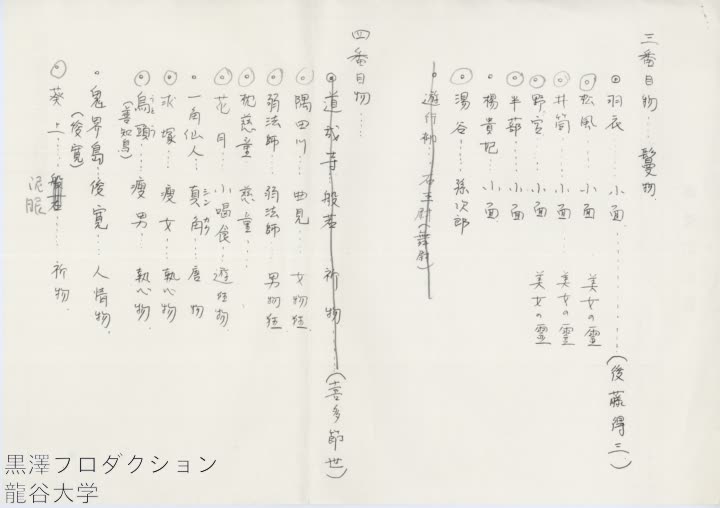 三番目物……鬘物
◎羽衣……小面……………(後藤得三)
◎松風……小面 美女の霊
◎井筒……小面 美女の霊
◎野宮……小面 美女の霊
◎半蔀……小面
・楊貴妃……小面
◎湯谷……孫次郎
四番目物……
◎道成寺…般若 祈物……(喜多節世)
◎隅田川……曲見……女物狂
◎弱法師……弱法師 男物狂
◎枕慈童……慈童……
◎花月……小喝食……遊狂物
・一角仙人……真角……唐物
シンカク
◎求塚……瘦女……執心物
◎烏頭……瘦男……執心物
(善知鳥)
・鬼界島……俊寛……人情物
(俊寛)
◎葵上……祈物
泥眼
黒澤プロダクション
龍谷大学